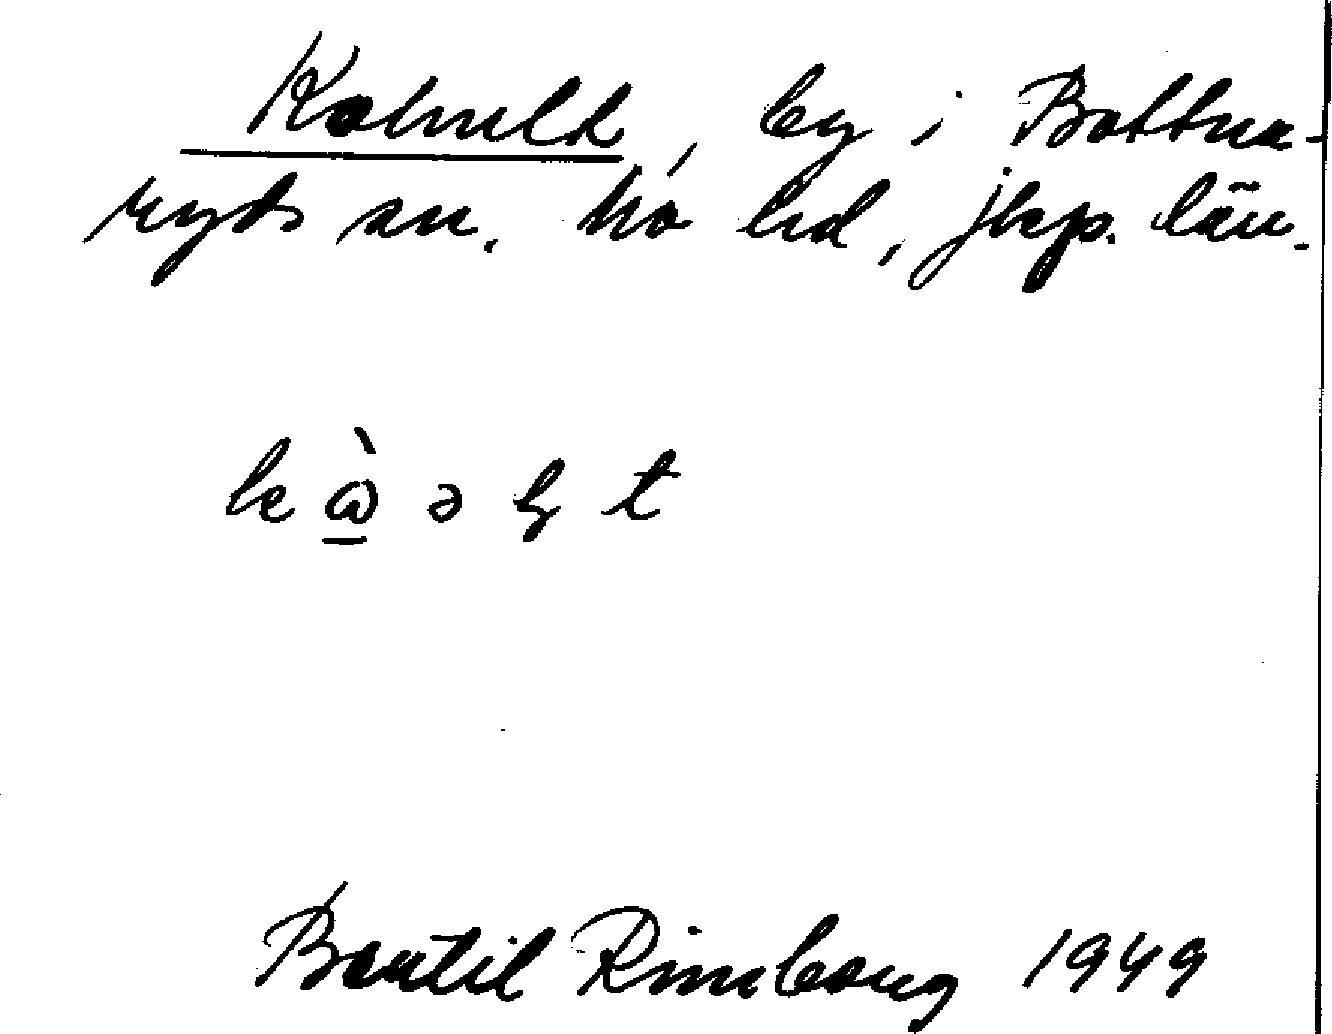 Kohult, by i Bottna-
ryds sn. Mo hd, Jkp. län.
Bertil Rimberg 1949